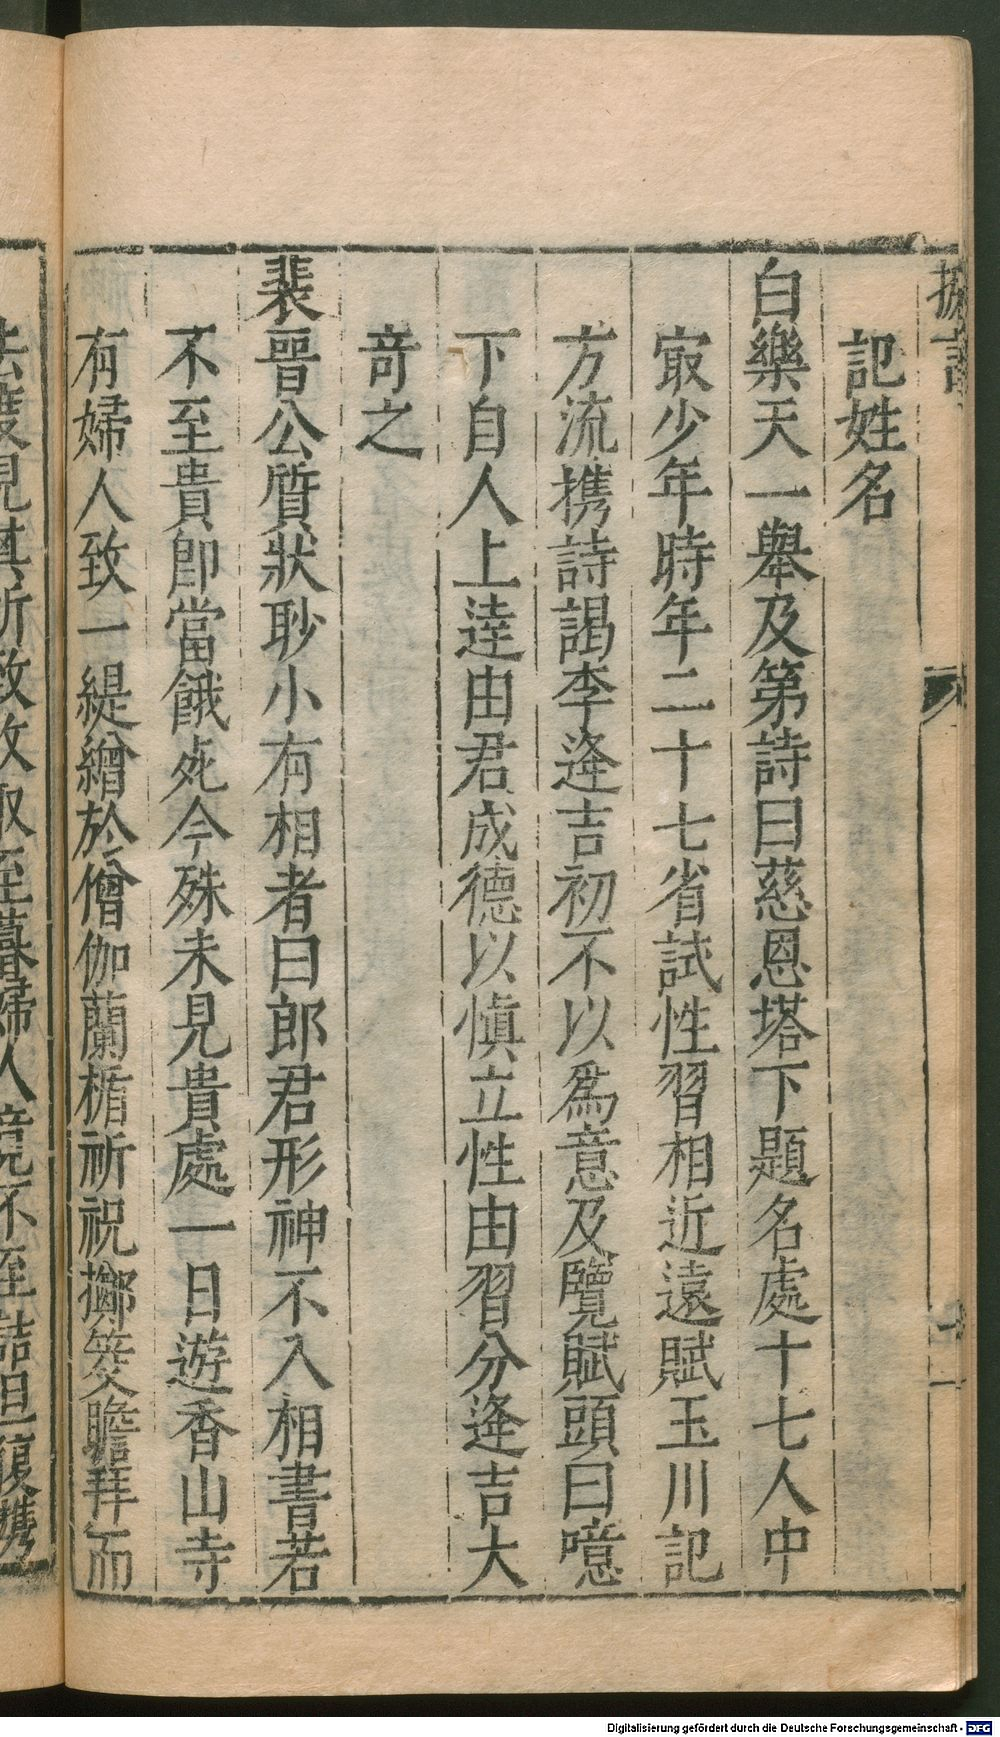 記姓名
白樂天一舉及第詩曰慈恩塔下題名處十七人中
㝡少年時年二十七省試性習相近遠賦玉川記
方流携詩謁李逄吉初不以爲意及覽賦頭曰噫
下自人上逹由君成德以慎立性由習分逄吉大
竒之
裴晉公質狀眇小有相者曰郎君形神不入相書若
不至貴卽當餓死今殊未見貴處一日遊香山寺
有婦人致一緹繒於僧伽蘭楯祈祝擲筊瞻拜而
Digitalisierung gefördert durch die Deutsche Forschungsgemeinschaft - DFG